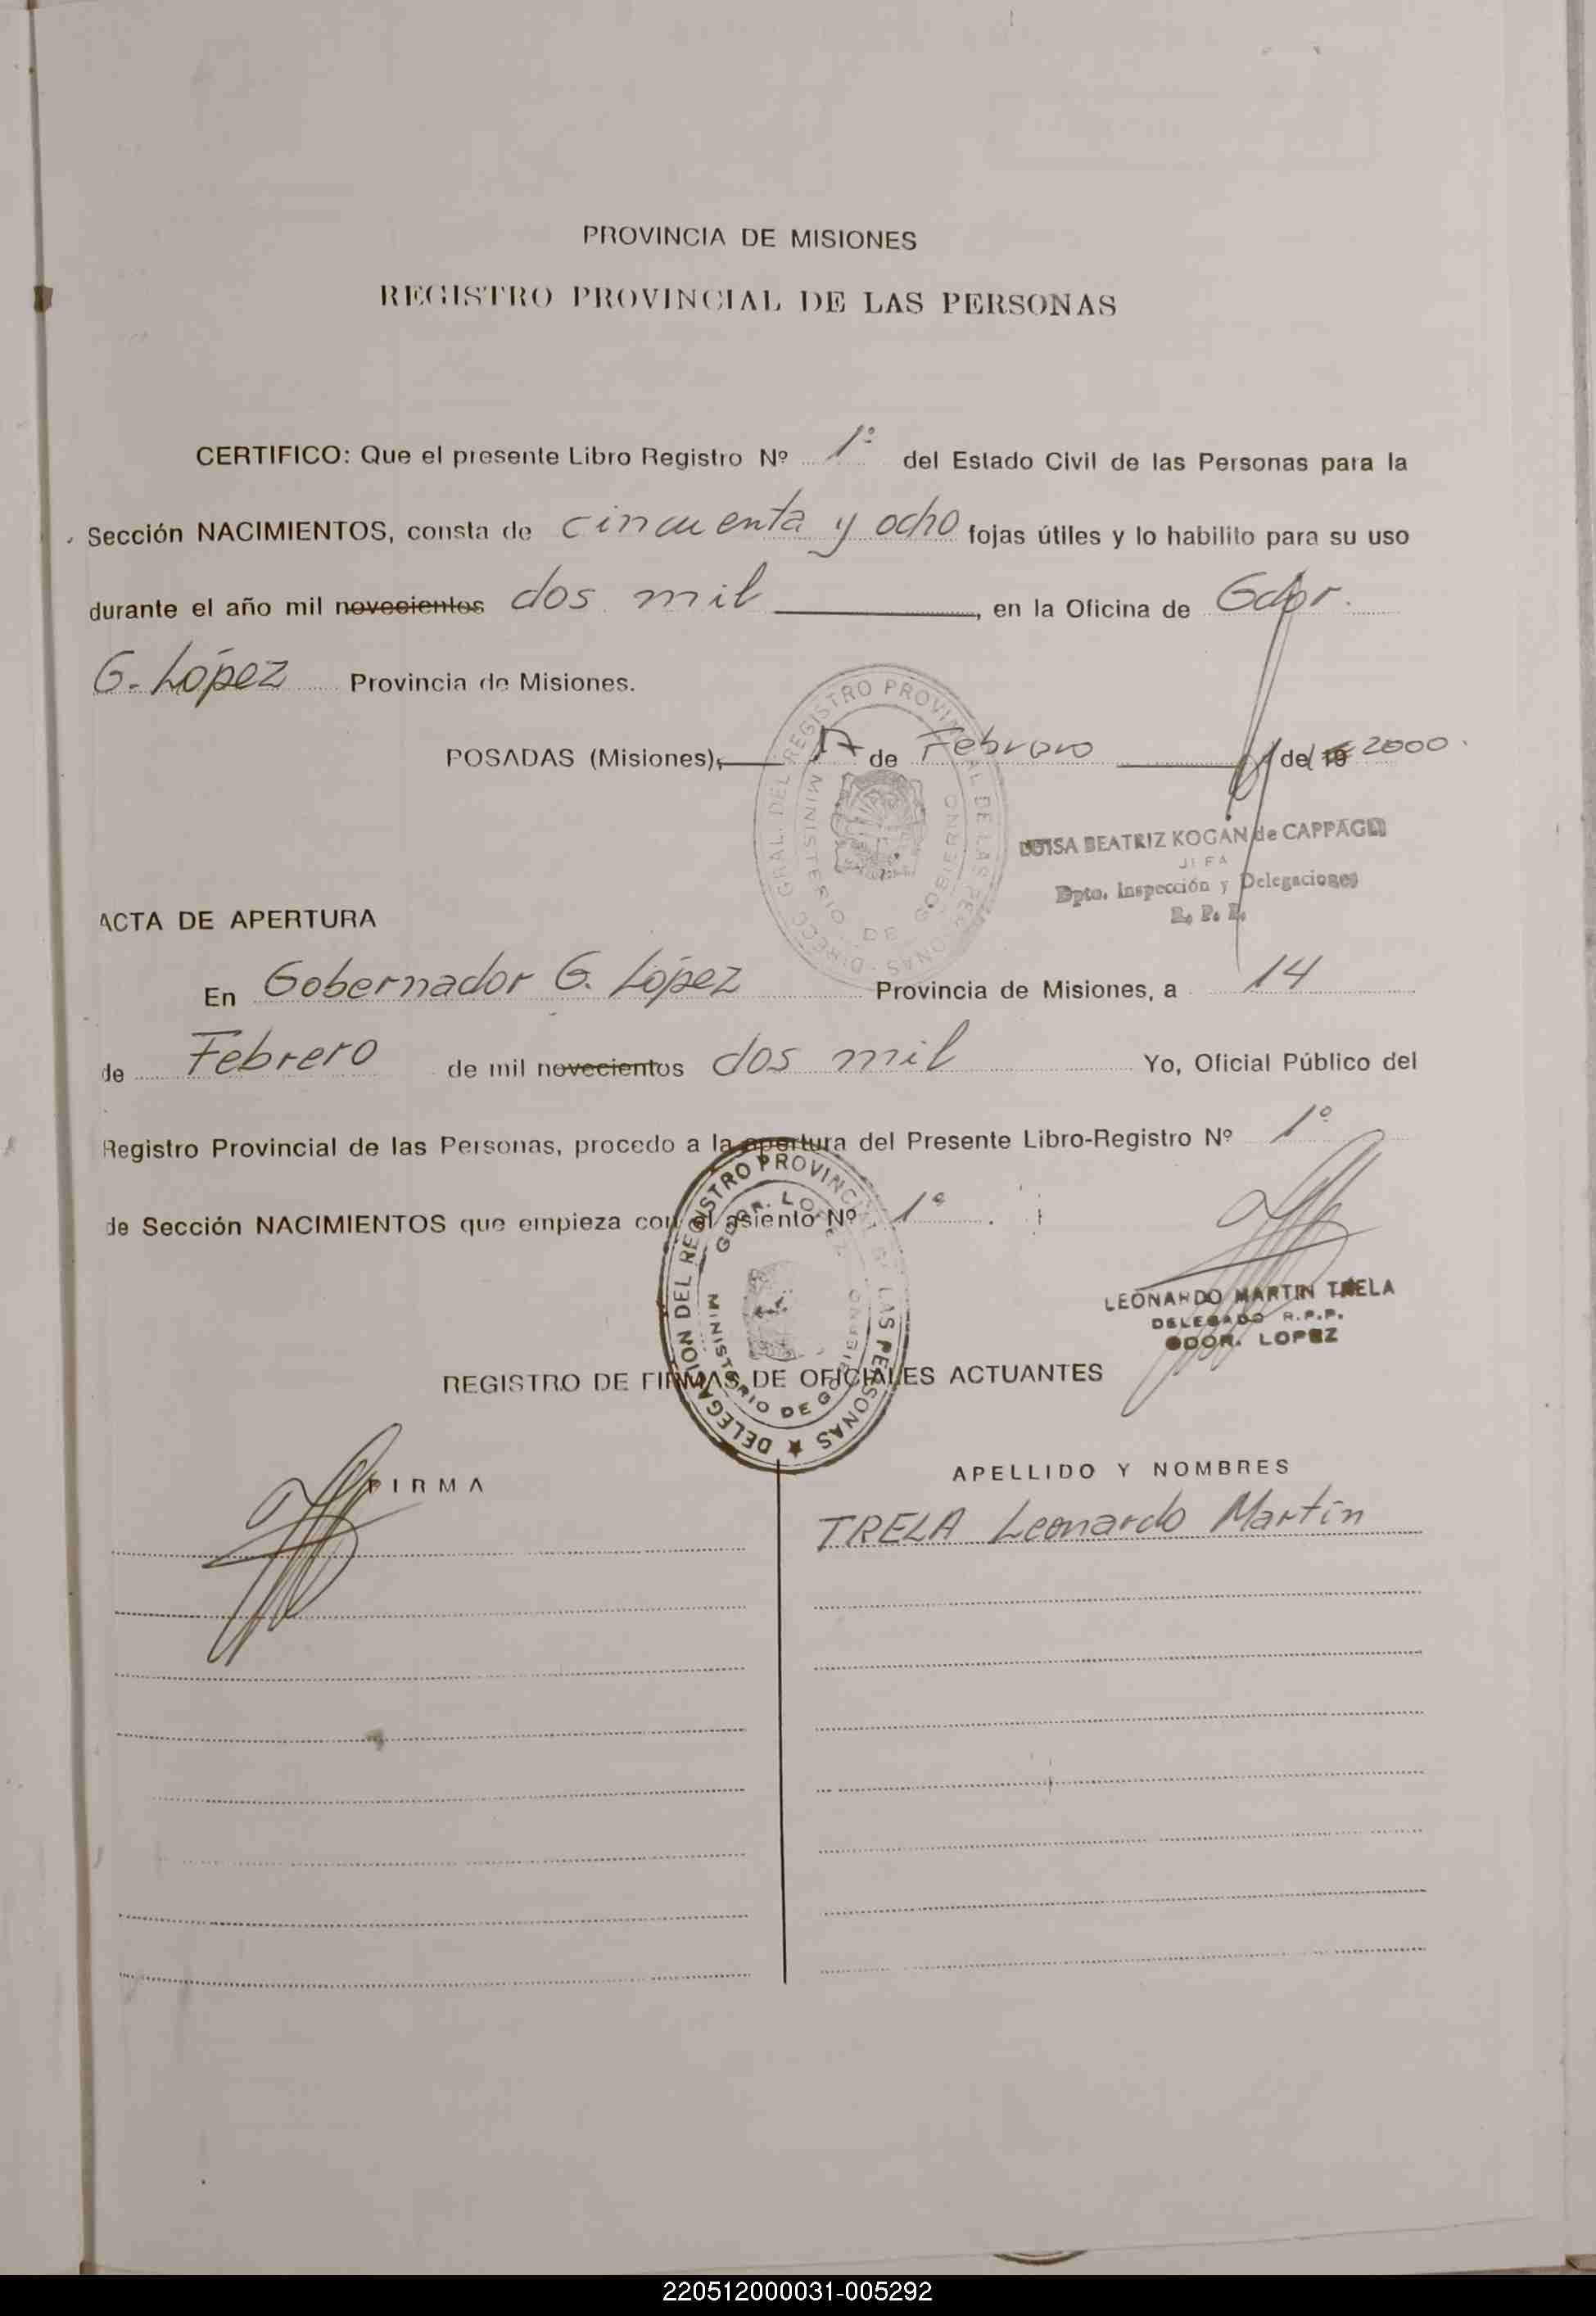 PROVINCIA DE MISIONES
REGISTRO PROVINCIAL DE LAS PERSONAS
CERTIFICO: Que el presente Libro Registro Nº 1º del Estado Civil de las Personas para la
Sección NACIMIENTOS, consta de cincuenta y ocho fojas útiles y lo habilito para su uso
durante el año mil novecientos dos mil, en la Oficina de Gdor.
G. López Provincia de Misiones.
POSADAS (Misiones), de Febrero de 19 2000.
DIRECC. GRAL. DEL REGISTRO PROVINCIAL DE LAS PERSONAS
MINISTERIO DE GOBIERNO
LUISA BEATRIZ KOGAN de CAPPAGLI
JEFA
Dpto. Inspección y Delegaciones
R. P. P.
ACTA DE APERTURA
En Gobernador G. López Provincia de Misiones, a 14
de Febrero de mil novecientos dos mil Yo, Oficial Público del
Registro Provincial de las Personas, procedo a la apertura del Presente Libro-Registro Nº 1º
de Sección NACIMIENTOS que empieza con el asiento Nº 1º.
DELEGACION DEL REGISTRO PROVINCIAL DE LAS PERSONAS
GDOR. LOPEZ
MINISTERIO DE GOBIERNO
LEONARDO MARTIN TRELA
DELEGADO R.P.P.
GDOR. LOPEZ
REGISTRO DE FIRMAS DE OFICIALES ACTUANTES
FIRMA
APELLIDO Y NOMBRES
TRELA Leonardo Martín
220512000031-005292